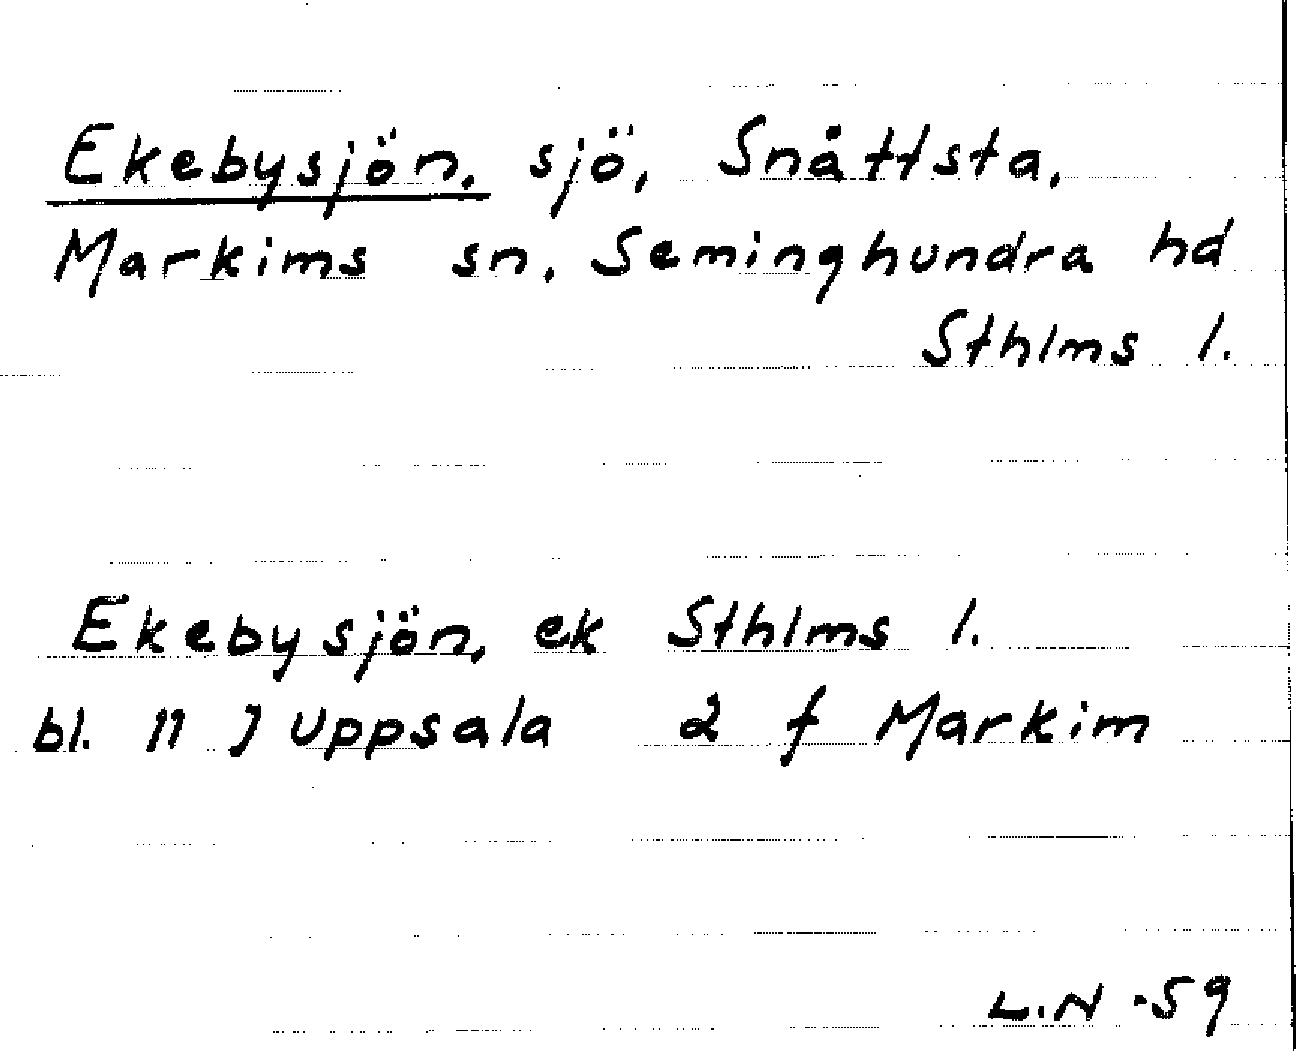 Ekebysjön, sjö, Snåttsta,
Markims sn. Seminghundra hd
Sthlms l.
Ekebysjön, ek Sthlms l.
bl. 11 J Uppsala 2 f Markim
L.N -59